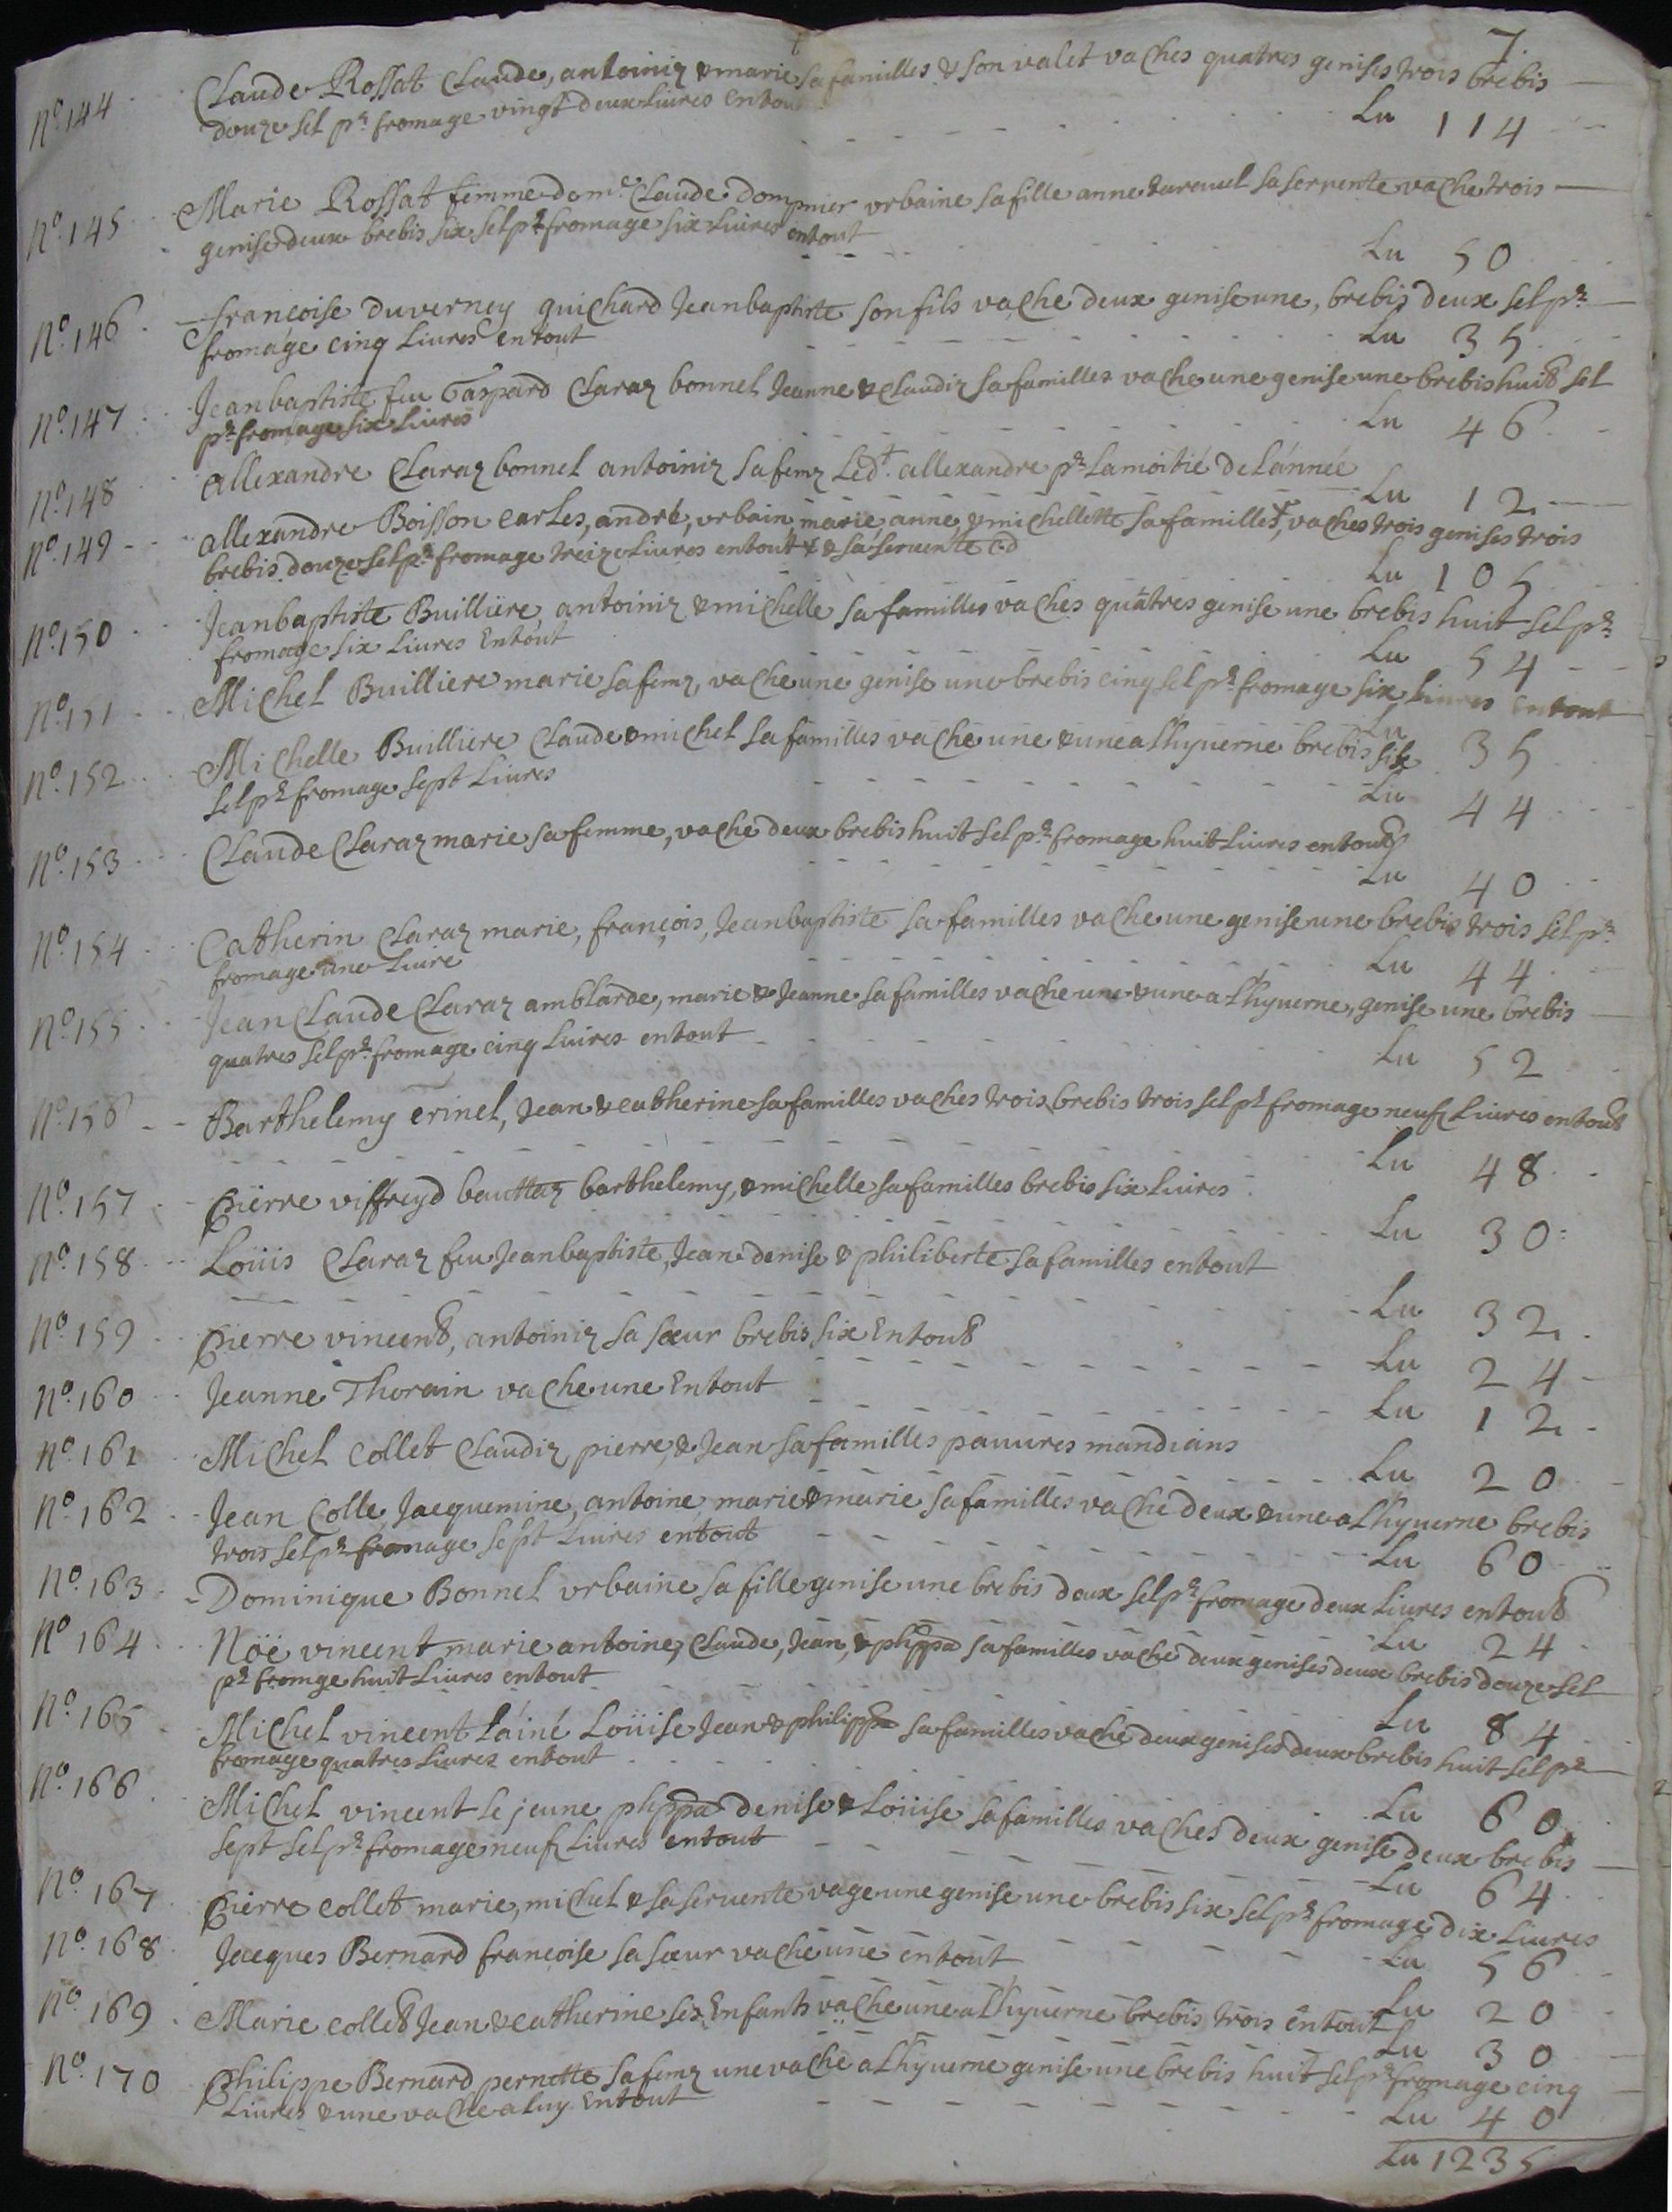 7.
N.º 144 Claude Rossat Claude, antoiniz & marie sa familles & son valet vaches quatres genises trois brebis
douze sel pr fromage vingt deux Liures Entout Lu 114
N.º 145 Marie Rossat femme de me Claude dompnier vrbaine sa fille anne sa seruente vache trois
genise deux brebis six sel pr fromage six Liures entout Lu 50
N.º 146 francoise duverney guichard Jeanbaptiste son fils vache deux genise une, brebis deux sel pr
fromage cinq Liures entout Lu 35
N.º 147 Jeanbaptiste feu Gaspard Claraz bonnel Jeanne & Claudiz sa familles vache une genise une brebis huit sel
pr fromage six Liures Lu 46
N.º 148 allexandre Claraz bonnel antoiniz sa femz Led.t allexandre pr La moitié de Lánneé
Lu 12
N.º 149 allexandre Boisson carles, andré, vrbain, marie, anne, & michellette sa familles, vaches trois genises trois
brebis douze sel pr fromage treize Liures entout & sa seruente
Lu 105
N.º 150 Jeanbaptiste Builliere, antoiniz & michelle sa familles vaches quatres genise une brebis huit sel pr
fromage six Liures Entout Lu 54
N.º 151 Michel Builliere marie sa femz, vache une genise une brebis cinq sel pr fromage six Liures Entout
Lu 35
N.º 152 Michelle Builliere Claude & michel sa familles vache une & une a Lhyuerne brebis six
sel pr fromage sept Liures Lu 44
N.º 153 Claude Claraz marie sa femme, vache deux brebis huit sel pr fromage huit Liures entout
Lu 40
N.º 154 Catherin Claraz marie, françois, Jeanbaptiste sa familles vache une genise une brebis trois sel pr
fromage une Liure Lu 44
N.º 155 Jean Claude Claraz amblarde, marie & Jeanne sa familles vache une & une a Lhyuerne, genise une brebis
quatres sel pr fromage cinq Liures entout Lu 52
N.º 156 Barthelemy crinel, Jean & catherine sa familles vaches trois brebis trois sel pr fromage neuf Liures entout
Lu 48
N.º 157 Pierre viffreyd beuttaz barthelemy, & michelle sa familles brebis six Liures
Lu 30
N.º 158 Loüis Claraz feu Jeanbaptiste, Jean denise & philiberte sa familles entout
Lu 32
N.º 159 Pierre vincent, antoiniz sa sœur brebis six Entout
Lu 24
N.º 160 Jeanne Thorain vache une Entout
Lu 12
N.º 161 Michel Collet Claudiz pierre, & Jean sa familles pauures mandians
Lu 20
N.º 162 Jean Colle, Jacquemine, antoine marie & marie sa familles vache deux & une a Lhyuerne brebis
trois sel pr fromage sept Liures entout Lu 60
N.º 163 Dominique Bonnel vrbaine sa fille genise une brebis deux sel pr fromage deux Liures entout
Lu 24
N.º 164 Nöé vincent marie antoine, Claude, Jean, & phppa sa familles vache deux genises deux brebis douze sel
pr fromge huit Liures entout Lu 84
N.º 165 Michel vincent Láiné Loüise Jean & philippa sa familles vache deux genises deux brebis huit sel pr
fromage quatres Liures entout Lu 60
N.º 166 Michel vincent le jeune phppa denise & Loüise sa familles vaches deux genise deux brebis
sept sel pr fromage neuf Liures entout Lu 64
N.º 167 Pierre collet marie, michel & sa seruente vage une genise une brebis six sel pr fromage dix Liures
Lu 56
N.º 168 Jacques Bernard francoise sa sœur vache une entout
Lu 20
N.º 169 Marie collet Jean & catherine ses Enfants vache une a Lhyuerne brebis trois entout
Lu 30
N.º 170 Philippe Bernard pernette sa femz une vache a Lhyuerne genise une brebis huit sel pr fromage cinq
Liures & une vache a Luy Entout Lu 40
Lu 1235